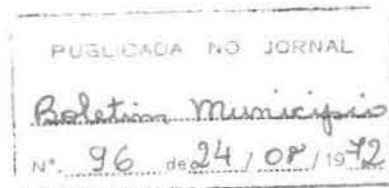 PUBLICADA NO JORNAL
Boletim Município
Nº. 96 de 24 / 08 / 1972